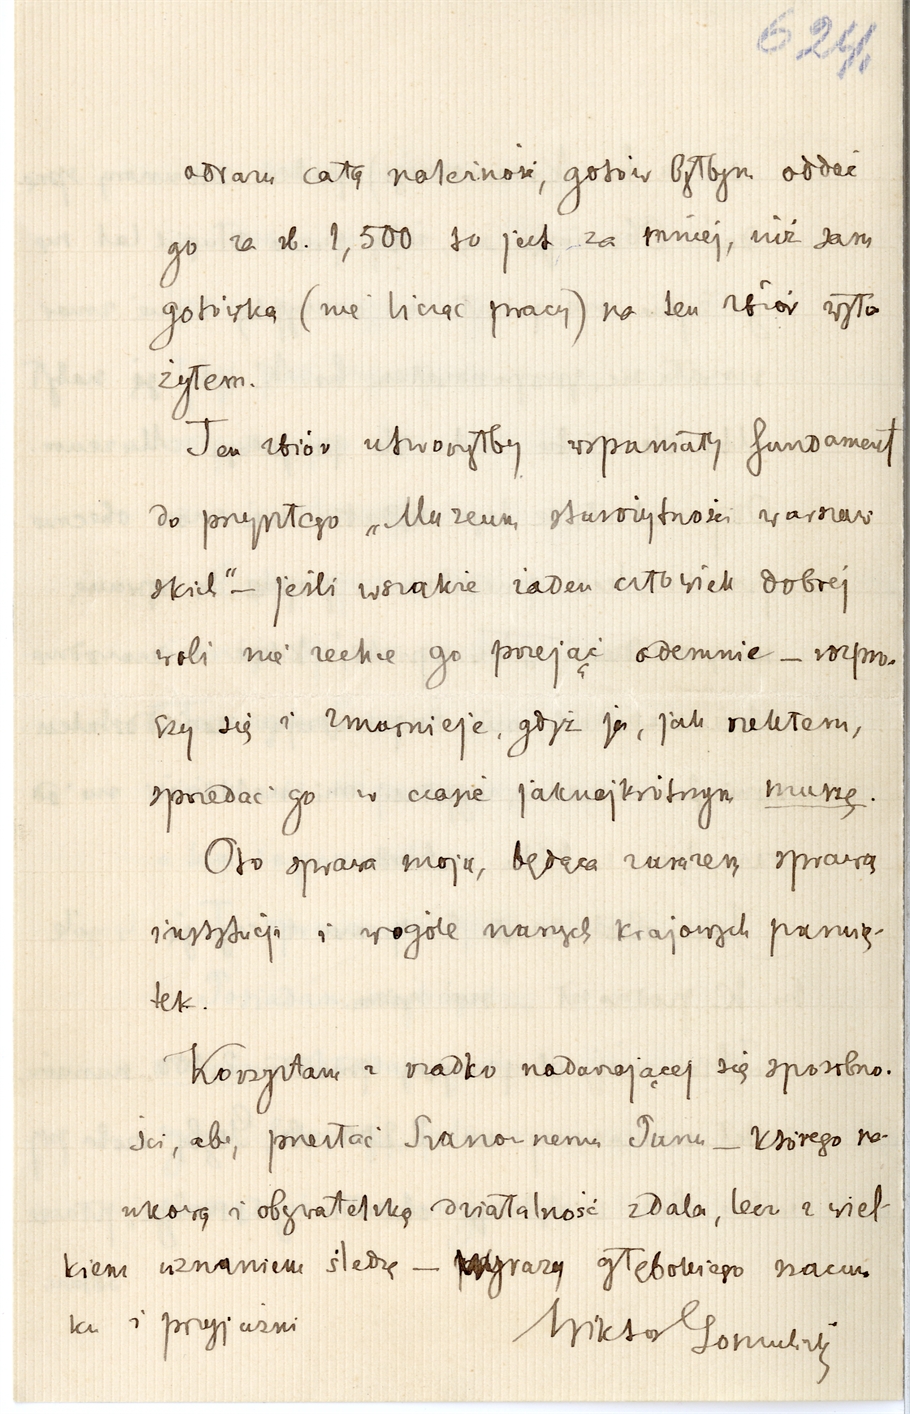 624,
odrazu całą należność, gotów byłbym oddać
go za rb. 1,500 to jest za mniej, niż sam
gotówką (nie licząc pracy) na ten zbiór wyło
żyłem.
Ten zbiór utworzyłby wspaniały fundament
do przyszłego „Muzeum starożytności warszaw
skich" — jeśli wszakże żaden człowiek dobrej
woli nie zechce go przejąć odemnie — rozpro-
szy się i zmarnieje, gdyż ja, jak rzekłem,
sprzedać go w czasie jaknajkrótszym muszę.
Oto sprawa moja, będąca zarazem sprawą
instytucji i wogóle naszych krajowych pamią-
tek.
Korzystam z rzadko nadarzającej się sposobno-
ści, aby przesłać Szanownemu Panu — którego na-
ukową i obywatelską działalność zdala, lecz z wiel-
kiem uznaniem śledzę — wyrazy głębokiego szacun
ku i przyjaźni
Wiktor Gomulicki